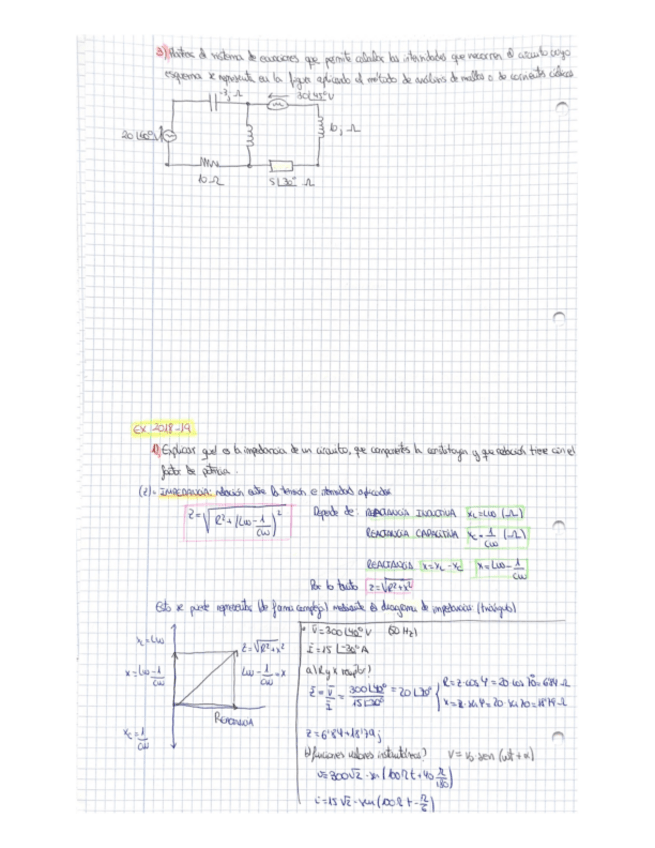 3) Plantea el sistema de ecuaciones que permite calcular las intensidades que recorren el circuito cuyo
esquema se representa en la figura aplicando el método de análisis de mallas o de corrientes cíclicas
-3j Ω
30∠45° V
20∠60°
10j Ω
10 Ω
5∠30° Ω
EX 2018-19
1) Explicar qué es la impedancia de un circuito, que componentes la constituyen y que relación tiene con el
factor de potencia.
(Z) = IMPEDANCIA: relación entre la tensión e intensidad aplicadas
Z=√(R²+(Lω-1/Cω)²)
Depende de: REACTANCIA INDUCTIVA XL=Lω (Ω)
REACTANCIA CAPACITIVA Xc=1/Cω (Ω)
REACTANCIA X=XL-Xc X=Lω-1/Cω
Por lo tanto Z=√R²+X²
Esto se puede representar (de forma compleja) mediante el diagrama de impedancias (triángulo)
XL=Lω
Z=√R²+X²
X=Lω-1/Cω
Lω-1/Cω=X
Xc=1/Cω
V=300∠40° V (50 Hz)
I=15∠-30° A
a) R y X
Z=V/I=300∠40°/15∠-30°=20∠70° R=Z·cos φ=20·cos 70=6'84 Ω
X=Z·sen φ=20·sen 70=18'79 Ω
Z=6'84+18'79j
b) funciones valores instantáneos? V=V₀ sen (ωt+α)
v=300√2·sen(100πt+40 π/180)
i=15√2·sen(100πt-π/6)